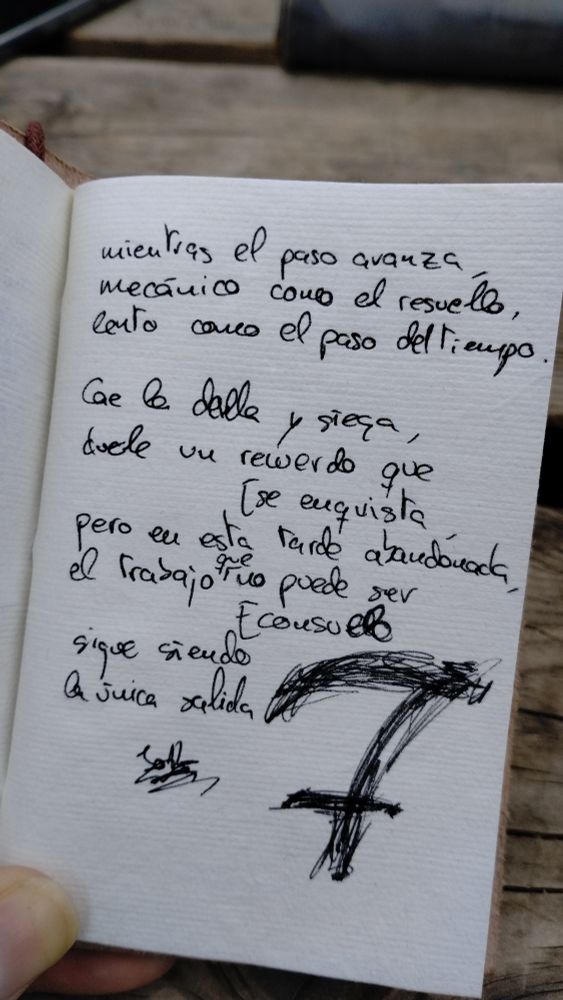 mientras el paso avanza,
mecánico como el resuello,
lento como el paso del tiempo.
Cae la dalla y siega,
duele un recuerdo que
[se enquista,
pero en esta tarde abandonada,
el trabajo que no puede ser
[consuelo
sigue siendo
la única salida
7